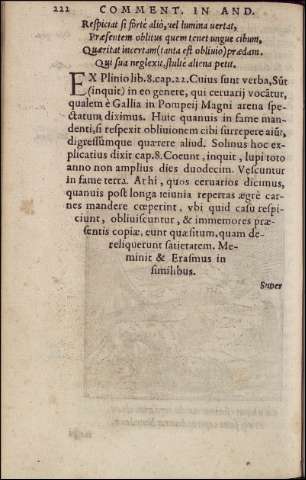 222 COMMENT. IN AND.
Respiciat si fortè aliò, vel lumina vertat,
Præsentem oblitus quem tenet ungue cibum,
Quæritat incertam (tanta est oblivio) prædam.
Qui sua neglexit, stultè aliena petit.
EX Plinio lib. 8. cap. 22. Cuius sunt verba, Sũt
(inquit) in eo genere, qui ceruarij vocãtur,
qualem è Gallia in Pompeij Magni arena spe-
ctatum diximus. Huic quanuis in fame man-
denti, si respexit obliuionem cibi surrepere aiũt,
digressúmque quærere aliud. Solinus hoc ex-
plicatius dixit cap. 8. Coeunt, inquit, lupi toto
anno non amplius dies duodecim. Vescuntur
in fame terra. At hi, quos ceruarios dicimus,
quanuis post longa ieiunia repertas ægrè car-
nes mandere cœperint, vbi quid casu respi-
ciunt, obliuiscuntur, & immemores præ-
sentis copiæ, eunt quæsitum, quam de-
reliquerunt satietatem. Me-
minit & Erasmus in
similibus.
Super